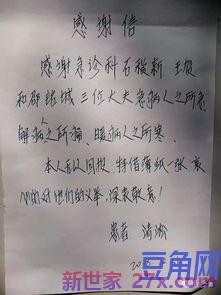 感谢信
感谢急诊科石教新 王
和邵 三位大夫急病人之所急
解病人之所 暖病人之所寒
本人无以回报 特借薄纸一张 表
心的对他们的义举 深表敬意！
患者 清
20
豆角网
新世家 27x.com